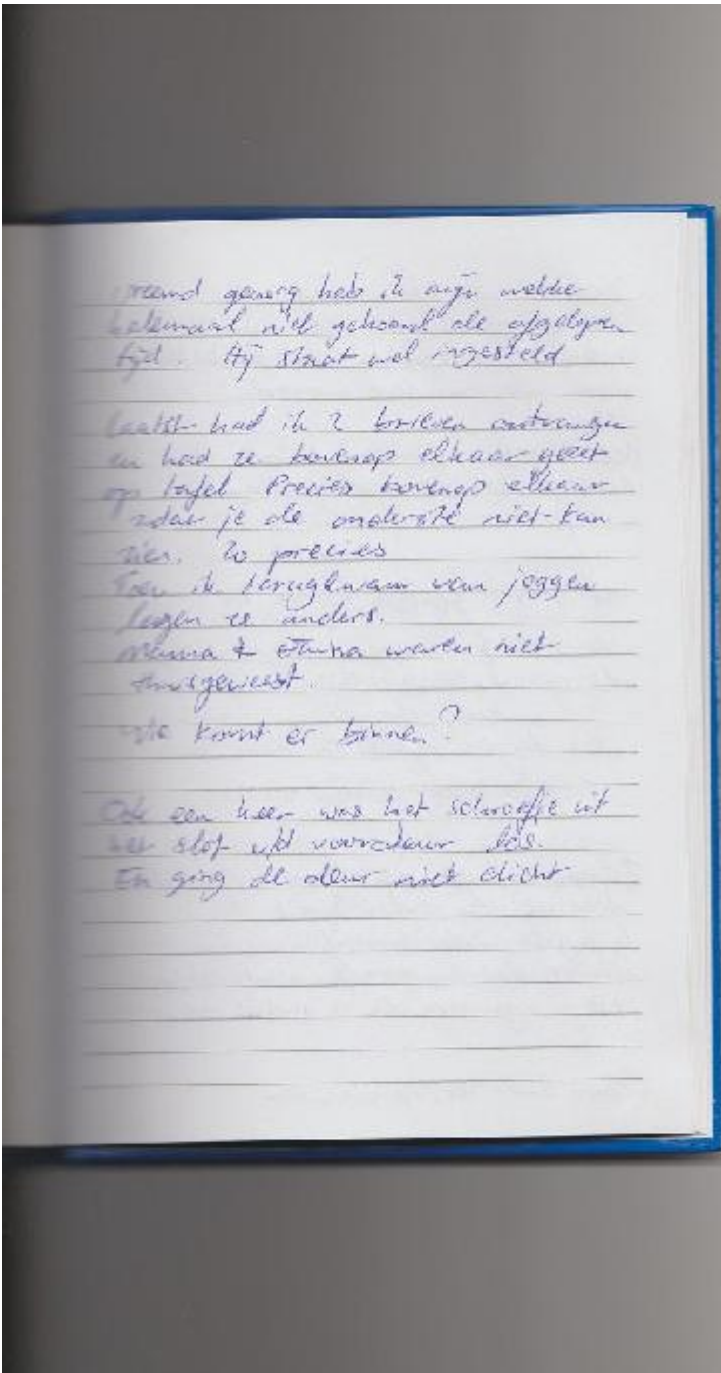 vreemd genoeg heb ik mijn wekker
helemaal niet gehoord de afgelopen
tijd. Hij staat wel ingesteld
Laatst had ik 2 brieven ontvangen
en had ze bovenop elkaar gezet
op tafel Precies bovenop elkaar
zodat je de onderste niet kan
zien. Zo precies
Toen ik terugkwam van joggen
lagen ze anders.
Mama & waren niet
thuisgeweest.
Wie komt er binnen?
Ook een keer was het schroefje uit
het slot vd voordeur los.
En ging de deur niet dicht